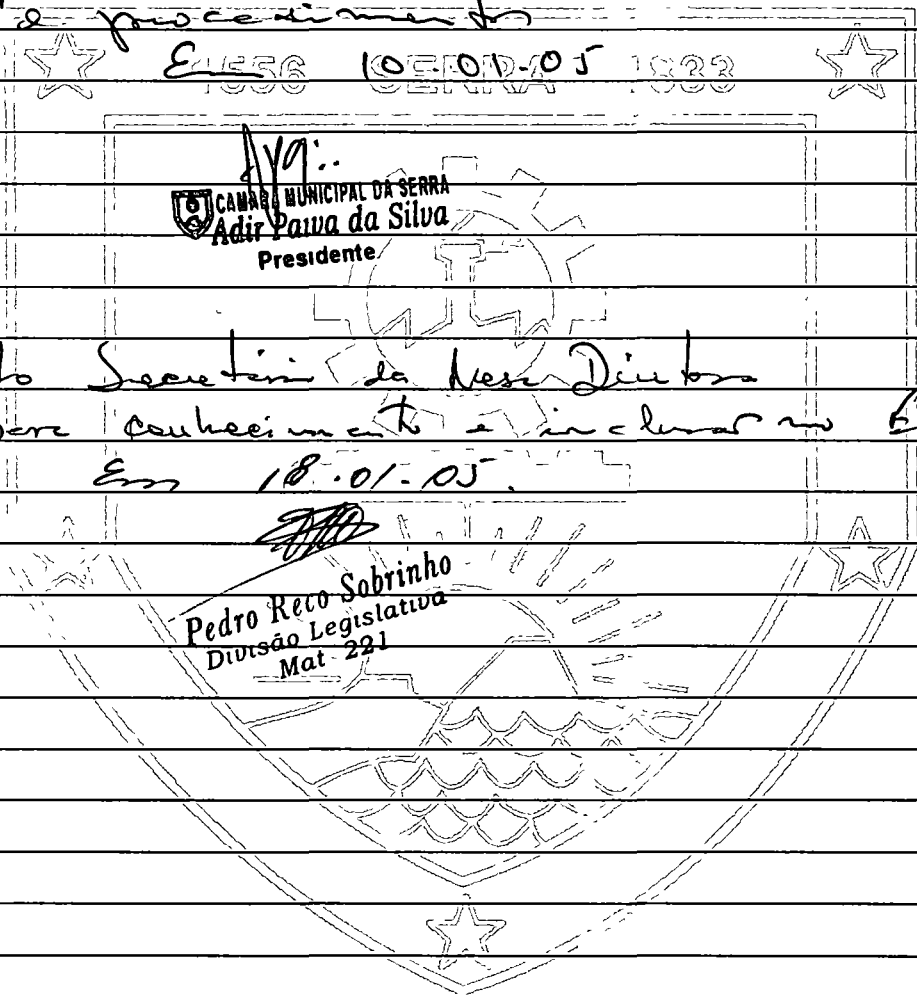 e procedimentos
Em 10-01-05
1556 SERRA 1833
CAMARA MUNICIPAL DA SERRA
Adir Paiva da Silva
Presidente
Secretário da Mesa Diretora
conhecimento e inclusão no E
Em 18.01-05.
Pedro Reco Sobrinho
Divisão Legislativa
Mat 221